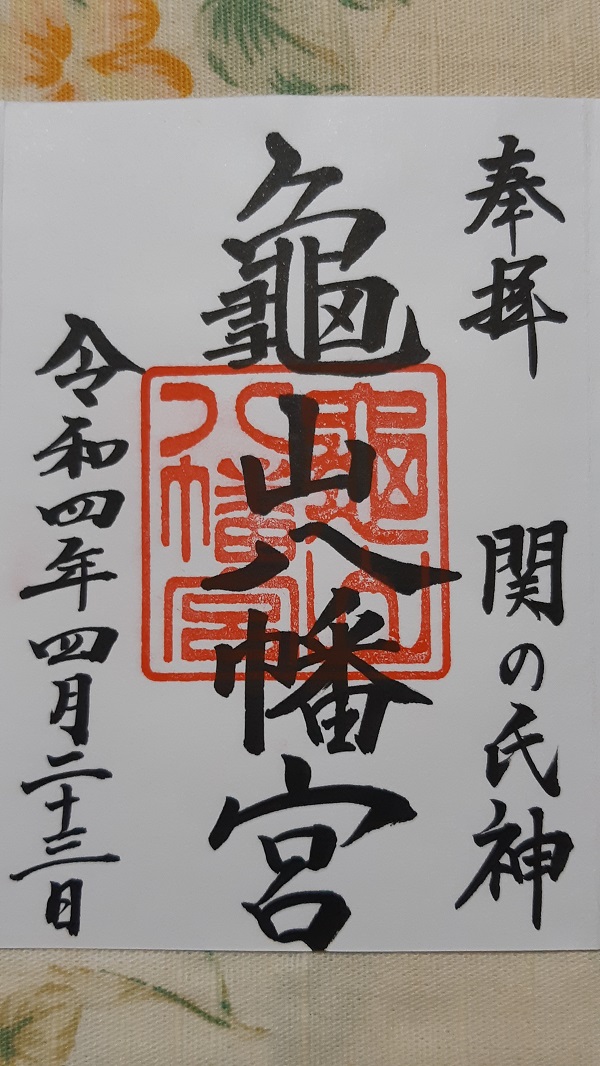 奉拝　関の氏神
龜山八幡宮
龜山八幡宮
令和四年四月二十三日